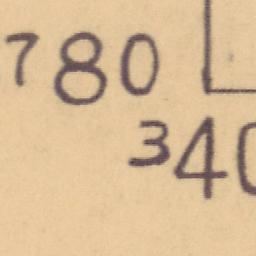 780
340